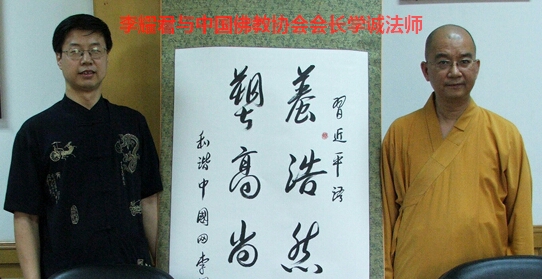 李耀君与中国佛教协会会长学诚法师
習近平語
養浩然
塑高尚
和谐中國网李